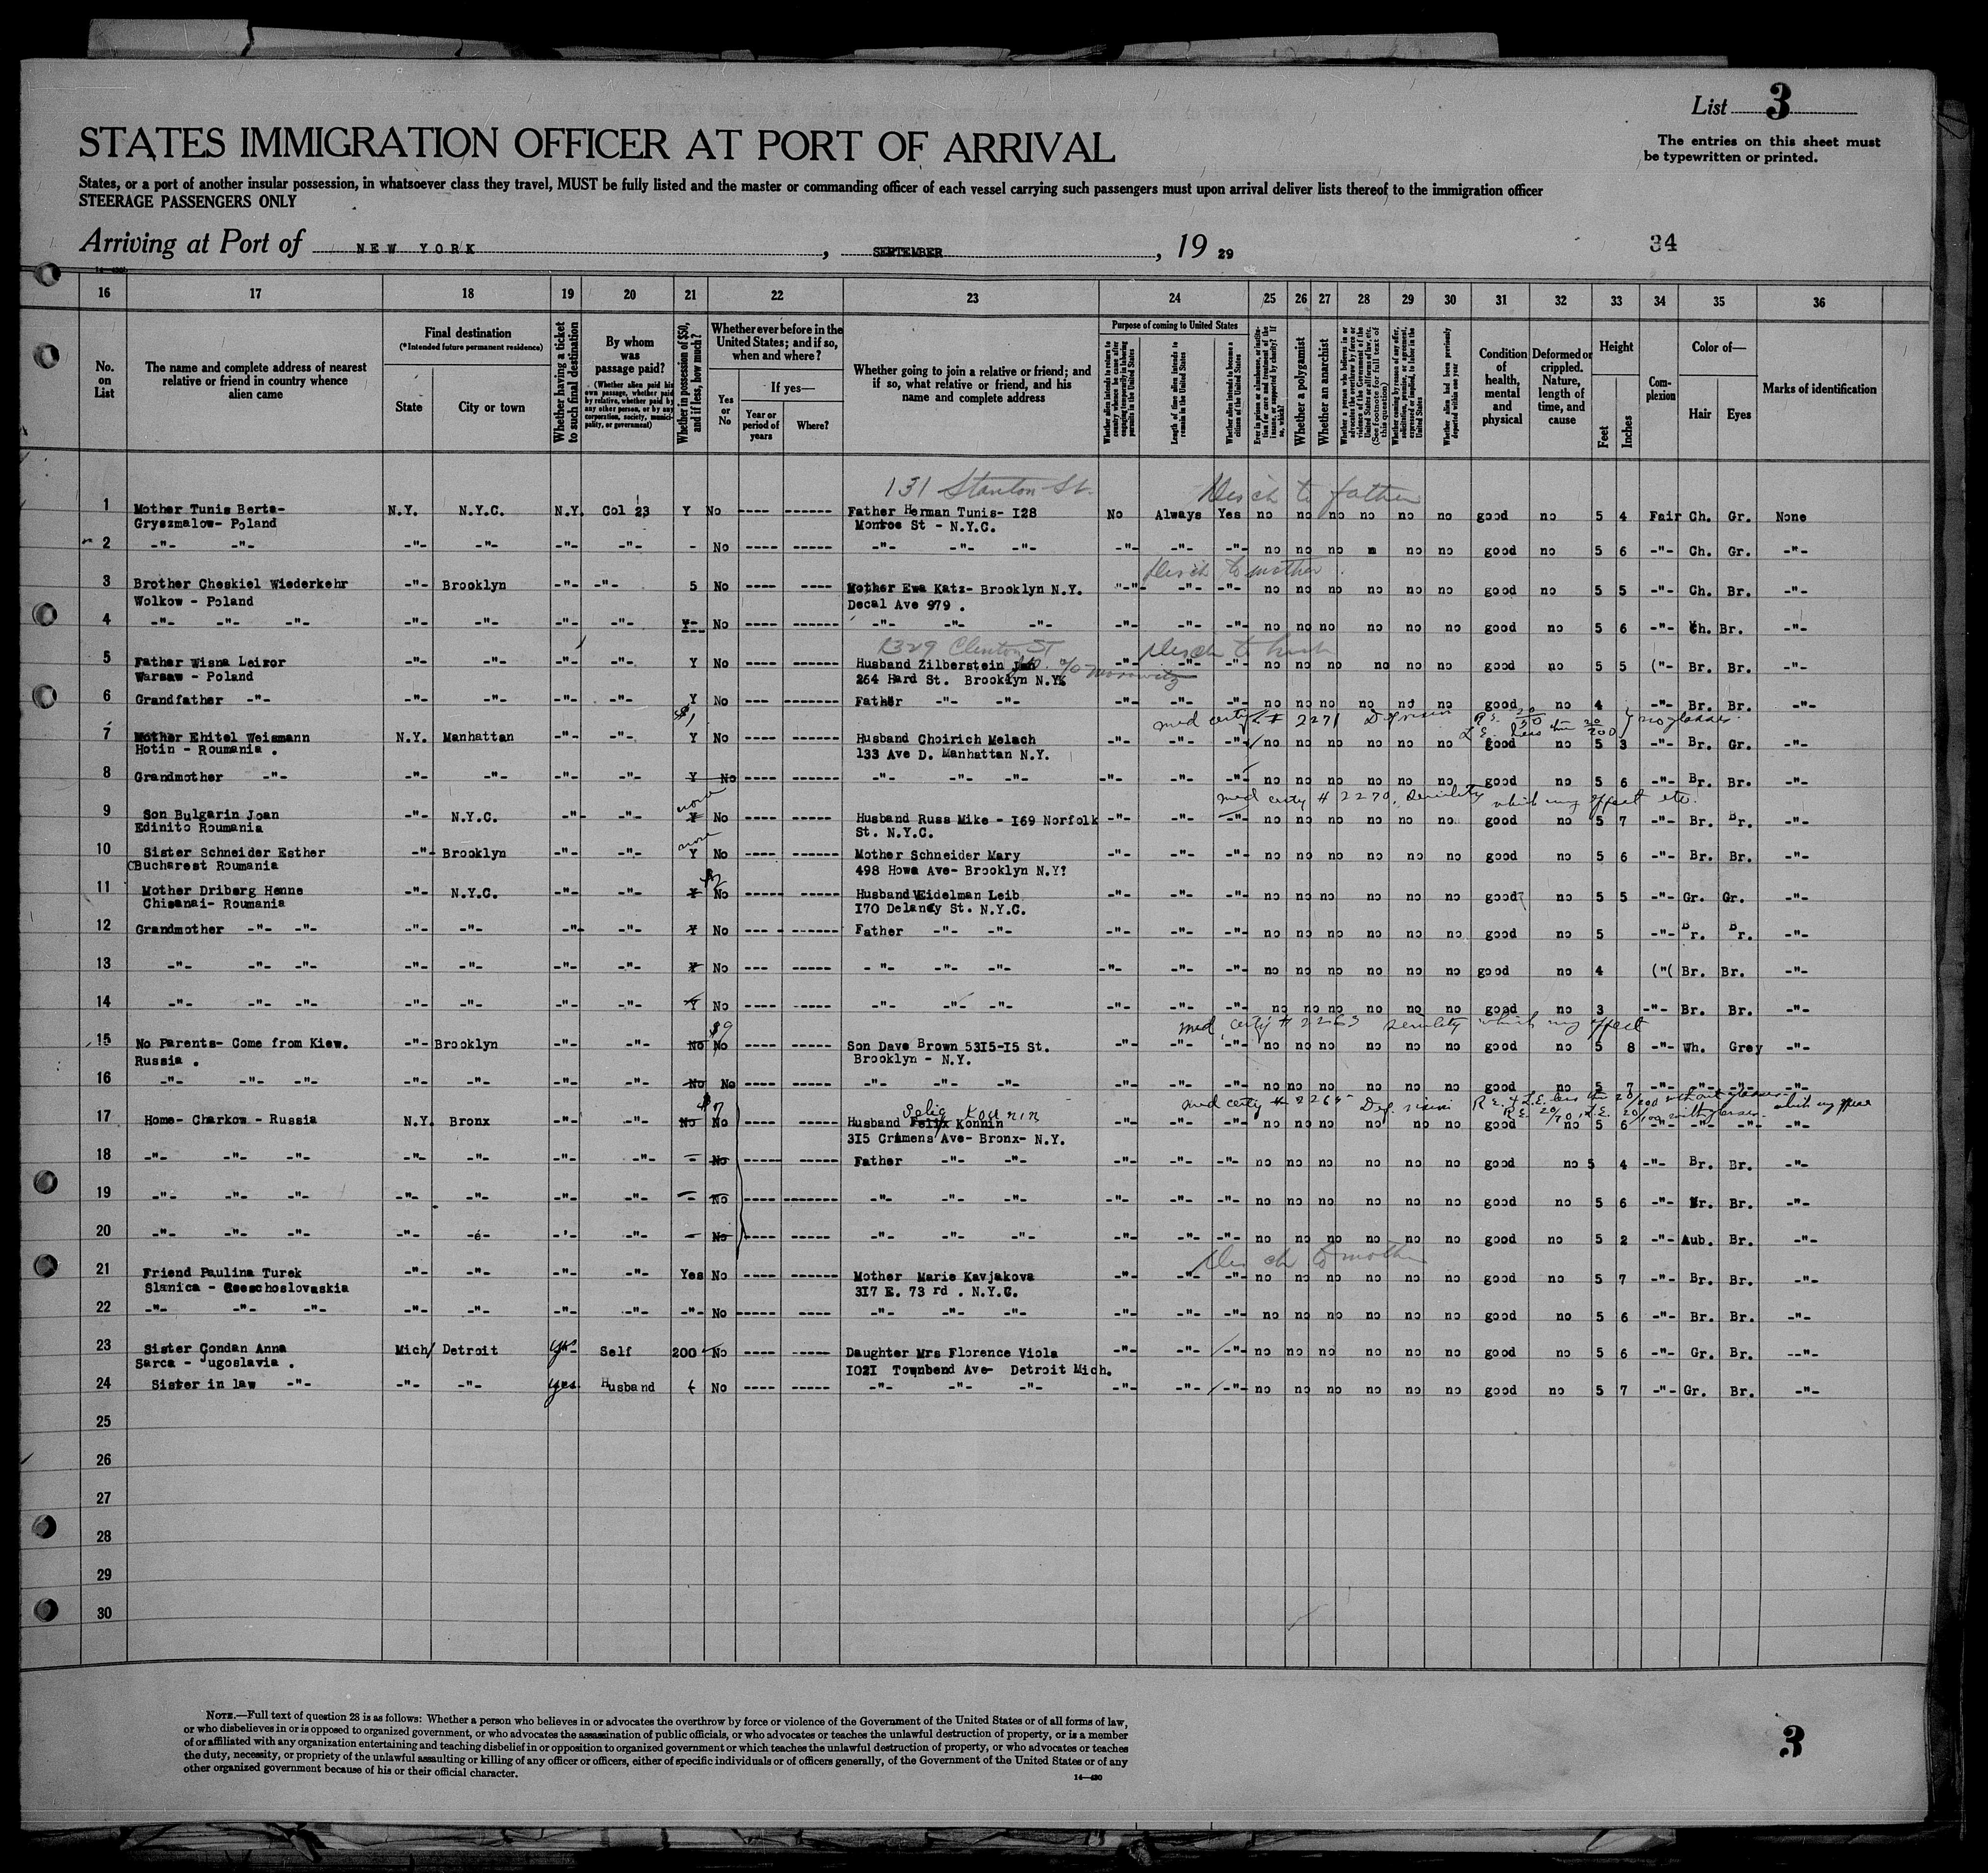 List 3
STATES IMMIGRATION OFFICER AT PORT OF ARRIVAL
The entries on this sheet must
be typewritten or printed.
States, or a port of another insular possession, in whatsoever class they travel, MUST be fully listed and the master or commanding officer of each vessel carrying such passengers must upon arrival deliver lists thereof to the immigration officer
STEERAGE PASSENGERS ONLY
Arriving at Port of NEW YORK, SEPTEMBER, 19 29
34
16 17 18 19 20 21 22 23 24 25 26 27 28 29 30 31 32 33 34 35 36
No. on List
The name and complete address of nearest relative or friend in country whence alien came
Final destination
(*Intended future permanent residence)
State
City or town
Whether having a ticket to such final destination
By whom was passage paid?
(Whether alien paid his own passage, whether paid by relative, whether paid by any other person, or by any corporation, society, municipality, or government)
Whether in possession of $50, and if less, how much?
Whether ever before in the United States; and if so, when and where?
Yes or No
If yes—
Year or period of years
Where?
Whether going to join a relative or friend; and if so, what relative or friend, and his name and complete address
Purpose of coming to United States
Whether alien intends to return to country whence he came after engaging temporarily in laboring pursuits in the United States
Length of time alien intends to remain in the United States
Whether alien intends to become a citizen of the United States
Ever in prison or almshouse, or institution for care and treatment of the insane, or supported by charity? If so, which?
Whether a polygamist
Whether an anarchist
Whether a person who believes in or advocates the overthrow by force or violence of the Government of the United States or all forms of law, etc. (See footnote for full text of this question)
Whether coming by reason of any offer, solicitation, promise, or agreement, expressed or implied, to labor in the United States
Whether alien had been previously deported within one year
Condition of health, mental and physical
Deformed or crippled. Nature, length of time, and cause
Height
Feet
Inches
Complexion
Color of—
Hair
Eyes
Marks of identification
131 Stanton St. Disch to father
1 Mother Tunis Berta- N.Y. N.Y.C. N.Y. Col 23 Y No ---- ------ Father Herman Tunis- 128 No Always Yes no no no no no no good no 5 4 Fair Ch. Gr. None
Gryszmalow- Poland Monroe St - N.Y.C.
2 -"- -"- -"- -"- -"- -"- - No ---- ----- -"- -"- -"- -"- -"- -"- no no no n no no good no 5 6 -"- Ch. Gr. -"-
Disch to mother
3 Brother Cheskiel Wiederkehr -"- Brooklyn -"- -"- 5 No ---- ---- Mother Ewa Katz- Brooklyn N.Y. "-"- -"- -"- no no no no no no good no 5 5 -"- Ch. Br. -"-
Wolkow - Poland Decal Ave 979 .
4 -"- -"- -"- -"- -"- -"- -"- Y- No ---- ------ -"- -"- -"- -"- -"- -"- no no no no no no good no 5 6 -"- Ch. Br. -"-
1329 Clinton St Disch to husb
5 Father Wisna Leizor -"- -"- -"- -"- Y No ---- ------ Husband Zilberstein c/o -"- -"- -"- no no no no no no good no 5 5 ("- Br. Br. -"-
Warsaw - Poland 264 Hard St. Brooklyn N.Y.
6 Grandfather -"- -"- -"- -"- -"- Y No ---- ------ Father -"- -"- -"- -"- -"- no no no no no no good no 4 -"- Br. Br. -"-
$1 med certf. # 2271 Def vision R.E. 20/50 L.E. less than 20/200 } no glasses.
7 Mother Ehitel Weismann N.Y. Manhattan -"- -"- Y No ---- ------ Husband Choirich Melach -"- -"- -"- no no no no no no good no 5 3 -"- Br. Gr. -"-
Hotin - Roumania . 133 Ave D. Manhattan N.Y.
8 Grandmother -"- -"- -"- -"- -"- Y No ---- ----- -"- -"- -"- -"- -"- -"- no no no no no no good no 5 6 -"- Br. Br. -"-
none med certf # 2270, senility which may affect etc.
9 Son Bulgarin Joan -"- N.Y.C. -"- -"- Y No ---- ------ Husband Russ Mike - 169 Norfolk -"- -"- -"- no no no no no no good no 5 7 -"- Br. Br. -"-
Edinito Roumania St. N.Y.C.
none
10 Sister Schneider Esther -"- Brooklyn -"- -"- Y No ---- ------ Mother Schneider Mary -"- -"- -"- no no no no no no good no 5 6 -"- Br. Br. -"-
(Bucharest Roumania 498 Howa Ave- Brooklyn N.Y?
$2
11 Mother Driberg Henne -"- N.Y.C. -"- -"- Y No ----- ------ Husband Weidelman Leib -"- -"- -"- no no no no no no good no 5 5 -"- Gr. Gr. -"-
Chisanai- Roumania 170 Delancy St. N.Y.C.
12 Grandmother -"- -"- -"- -"- -"- -"- Y No ---- ----- Father -"- -"- -"- -"- -"- no no no no no no good no 5 -"- Br. Br. -"-
13 -"- -"- -"- -"- -"- -"- -"- Y No ---- ----- -"- -"- -"- -"- -"- -"- no no no no no no good no 4 ("( Br. Br. -"-
14 -"- -"- -"- -"- -"- -"- -"- Y No ---- ----- -"- -"- -"- -"- -"- -"- no no no no no no good no 3 -"- Br. Br. -"-
$9 med certf # 2263 senility which may affect
15 No Parents- Come from Kiew. -"- Brooklyn -"- -"- No No ---- ----- Son Dave Brown 5315-15 St. -"- -"- -"- no no no no no no good no 5 8 -"- Wh. Grey -"-
Russia . Brooklyn - N.Y.
16 -"- -"- -"- -"- -"- -"- -"- No No ---- ----- -"- -"- -"- -"- -"- -"- no no no no no no good no 5 7 -"- -"- -"- -"-
$7 Selig Kounin med certf # 2265 Def. vision R.E. & L.E. less than 20/200 without glasses R.E. 20/70, L.E. 20/100 with glasses. which may affect
17 Home- Charkow - Russia N.Y. Bronx -"- -"- No No ---- ----- Husband Felix Konnin -"- -"- -"- no no no no no no good no 5 6 -"- -"- -"- -"-
315 Crimens Ave- Bronx- N.Y.
18 -"- -"- -"- -"- -"- -"- -"- - No ----- ----- Father -"- -"- -"- -"- -"- no no no no no no good no 5 4 -"- Br. Br. -"-
19 -"- -"- -"- -"- -"- -"- -"- - No ---- ------- -"- -"- -"- -"- -"- -"- no no no no no no good no 5 6 -"- Br. Br. -"-
20 -"- -"- -"- -"- -é- -'- -"- - No ---- ----- -"- -"- -"- -"- -"- -"- no no no no no no good no 5 2 -"- Aub. Br. -"-
Disch to mother
21 Friend Paulina Turek -"- -"- -"- -"- Yes No ---- ------ Mother Marie Kavjakova -"- -"- -"- no no no no no no good no 5 7 -"- Br. Br. -"-
Slanica - Czeschoslovaskia 317 E. 73 rd . N.Y.C.
22 -"- -"- -"- -"- -"- -"- -"- -"- No ----- ----- -"- -"- -"- -"- -"- -"- no no no no no no good no 5 6 -"- Br. Br. -"-
23 Sister Condan Anna Mich/ Detroit yes Self 200 No ---- ----- Daughter Mrs Florence Viola -"- -"- -"- no no no no no no good no 5 6 -"- Gr. Br. --"-
Sarca - Jugoslavia . 1021 Townbend Ave- Detroit Mich.
24 Sister in law -"- -"- -"- yes Husband No ---- ----- -"- -"- -"- -"- -"- -"- no no no no no no good no 5 7 -"- Gr. Br. -"-
25
26
27
28
29
30
NOTE.—Full text of question 28 is as follows: Whether a person who believes in or advocates the overthrow by force or violence of the Government of the United States or of all forms of law,
or who disbelieves in or is opposed to organized government, or who advocates the assassination of public officials, or who advocates or teaches the unlawful destruction of property, or is a member
of or affiliated with any organization entertaining and teaching disbelief in or opposition to organized government or which teaches the unlawful destruction of property, or who advocates or teaches
the duty, necessity, or propriety of the unlawful assaulting or killing of any officer or officers, either of specific individuals or of officers generally, of the Government of the United States or of any
other organized government because of his or their official character.
14—430
3